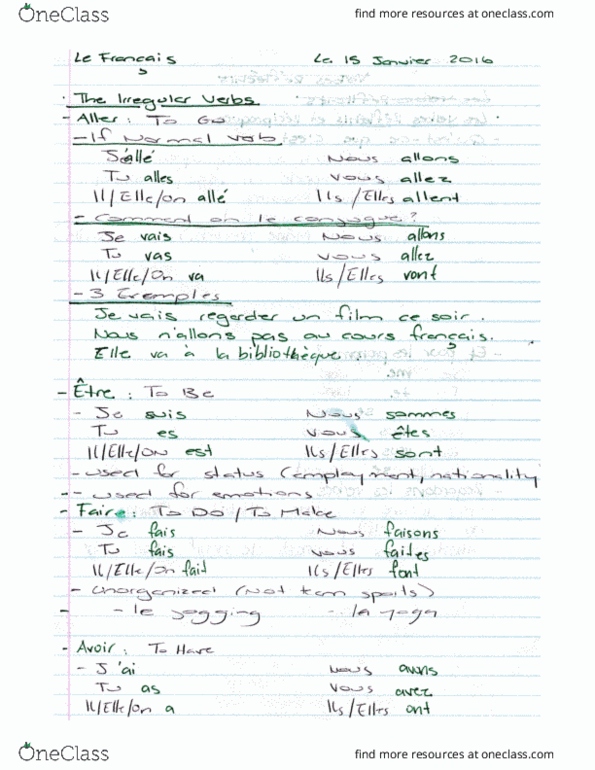 OneClass find more resources at oneclass.com
Le Français Le 15 Janvier 2016
· The Irregular Verbs
- Aller: To Go
- If Normal verb
J'allé Nous allons
Tu alles Vous allez
Il/Elle/on allé Ils/Elles allent
- Comment on le conjugue?
Je vais Nous allons
Tu vas Vous allez
Il/Elle/On va Ils/Elles vont
- 3 Exemples
Je vais regarder un film ce soir.
Nous n'allons pas au cours français.
Elle va à la bibliothèque.
- Être: To Be
- Je suis Nous sommes
Tu es Vous êtes
Il/Elle/On est Ils/Elles sont
- used for status (employment, nationality
-- used for emotions
- Faire: To Do / To Make
- Je fais Nous faisons
Tu fais Vous faites
Il/Elle/On fait Ils/Elles font
- Unorganized (Not team sports)
- - le jogging - la yoga
- Avoir: To Have
- J'ai Nous avons
Tu as Vous avez
Il/Elle/On a Ils/Elles ont
OneClass find more resources at oneclass.com